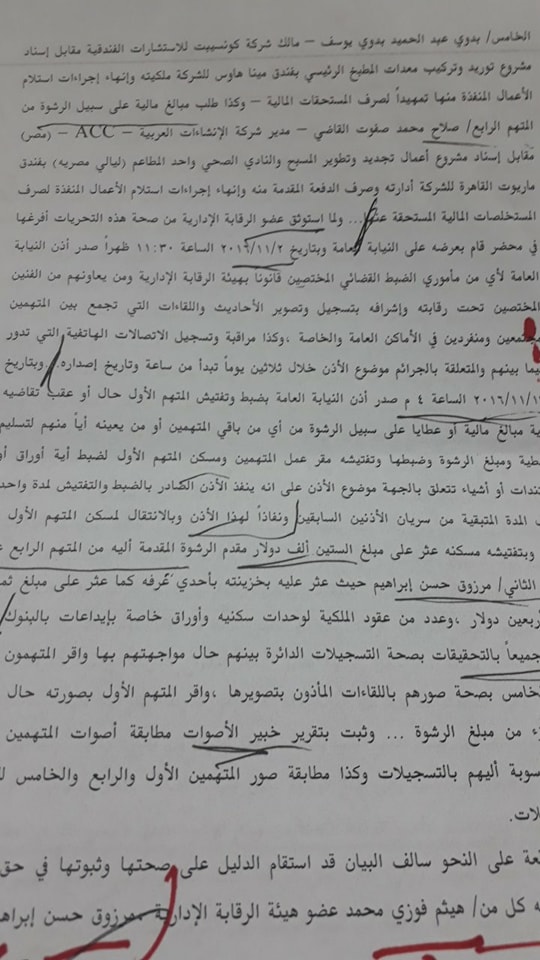 الخامس/ بدوي عبد الحميد بدوي يوسف – مالك شركة كونسيبت للاستشارات الفندقية مقابل إسناد
مشروع توريد وتركيب معدات المطبخ الرئيسي بفندق مينا هاوس للشركة ملكيته وإنهاء إجراءات استلام
الأعمال المنفذة منها تمهيداً لصرف المستحقات المالية – وكذا طلب مبالغ مالية على سبيل الرشوة من
المتهم الرابع/ صلاح محمد صفوت القاضي – مدير شركة الإنشاءات العربية – ACC – (مصر)
مقابل إسناد مشروع أعمال تجديد وتطوير المسبح والنادي الصحي واحد المطاعم (ليالي مصريه) بفندق
ماريوت القاهرة للشركة أدارته وصرف الدفعة المقدمة منه وإنهاء إجراءات استلام الأعمال المنفذة لصرف
المستخلصات المالية المستحقة عنها ... ولما استوثق عضو الرقابة الإدارية من صحة هذه التحريات أفرغها
في محضر قام بعرضه على النيابة العامة وبتاريخ ٢٠١٦/١١/٢ الساعة ١١:٣٠ ظهراً صدر أذن النيابة
العامة لأي من مأموري الضبط القضائي المختصين قانوناً بهيئة الرقابة الإدارية ومن يعاونهم من الفنين
المختصين تحت رقابته وإشرافه بتسجيل وتصوير الأحاديث واللقاءات التي تجمع بين المتهمين
مجتمعين ومنفردين في الأماكن العامة والخاصة ،وكذا مراقبة وتسجيل الاتصالات الهاتفية التي تدور
فيما بينهم والمتعلقة بالجرائم موضوع الأذن خلال ثلاثين يوماً تبدأ من ساعة وتاريخ إصداره. وبتاريخ
الساعة ٤ م صدر أذن النيابة العامة بضبط وتفتيش المتهم الأول حال أو عقب تقاضيه
مبالغ مالية أو عطايا على سبيل الرشوة من أي من باقي المتهمين أو من يعينه أياً منهم لتسليم
ومبلغ الرشوة وضبطها وتفتيشه مقر عمل المتهمين ومسكن المتهم الأول لضبط أية أوراق أو
أو أشياء تتعلق بالجهة موضوع الأذن على انه ينفذ الأذن الصادر بالضبط والتفتيش لمدة واحدة
المدة المتبقية من سريان الأذنين السابقين ونفاذاً لهذا الأذن وبالانتقال لمسكن المتهم الأول
وبتفتيشه مسكنه عثر على مبلغ الستين ألف دولار مقدم الرشوة المقدمة أليه من المتهم الرابع
الثاني/ مرزوق حسن إبراهيم حيث عثر عليه بخزينته بأحدي غرفه كما عثر على مبلغ
أربعين دولار ،وعدد من عقود الملكية لوحدات سكنيه وأوراق خاصة بإيداعات بالبنوك
جميعاً بالتحقيقات بصحة التسجيلات الدائرة بينهم حال مواجهتهم بها واقر المتهمون
الخامس بصحة صورهم باللقاءات المأذون بتصويرها ،واقر المتهم الأول بصورته حال
من مبلغ الرشوة ... وثبت بتقرير خبير الأصوات مطابقة أصوات المتهمين
أليهم بالتسجيلات وكذا مطابقة صور المتهمين الأول والرابع والخامس
على النحو سالف البيان قد استقام الدليل على صحتها وثبوتها في حق
كل من/ هيثم فوزي محمد عضو هيئة الرقابة الإدارية ،مرزوق حسن إبراهيم